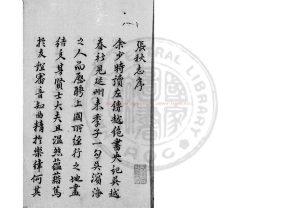 張秋志序
余少時讀左傳越絕書史記吳越
春秋見延州来季子一勾吳濱海
之人而歷聘上國所經行之地盡
結交其賢士大夫且溫然蘊藉篤
於友誼審音知曲精於樂律何其